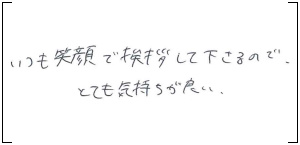 いつも笑顔で挨拶して下さるので.
とても気持ちが良い.